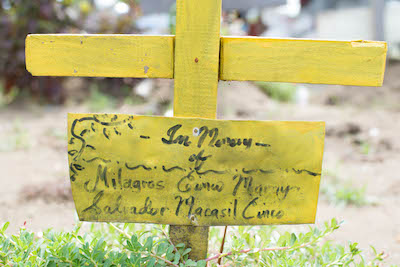 In Memory
of
Milagros Cinco Maraya
Salvador Macasil Cinco